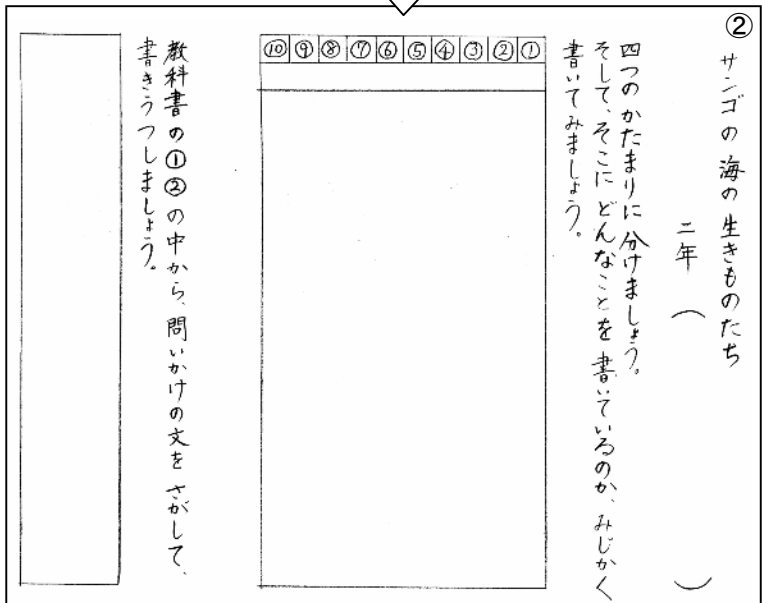 ②
サンゴの海の生きものたち
二年（　　　）
四つのかたまりに分けましょう。
そして、そこにどんなことを書いているのか、みじかく
書いてみましょう。
① ② ③ ④ ⑤ ⑥ ⑦ ⑧ ⑨ ⑩
教科書の①②の中から、問いかけの文をさがして、
書きうつしましょう。